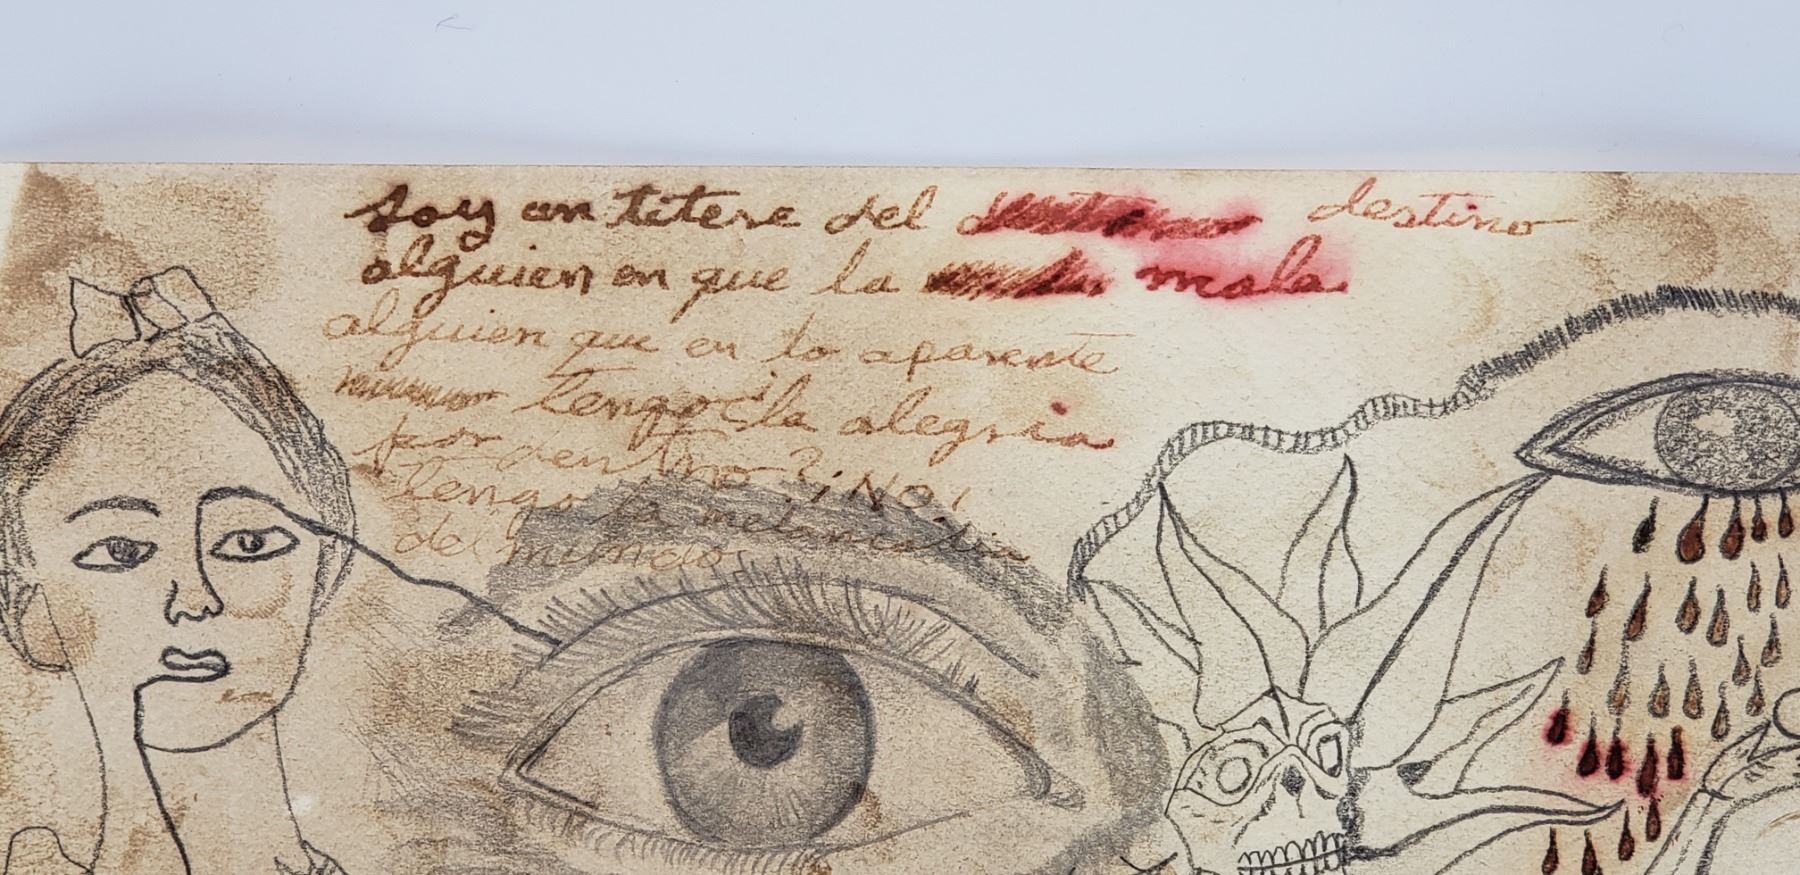 soy un titere del destino
alguien en que la mala
alguien que en lo aparente
tengo la alegria
por dentro? ¡NO!
tengo la melancolia
del mundo